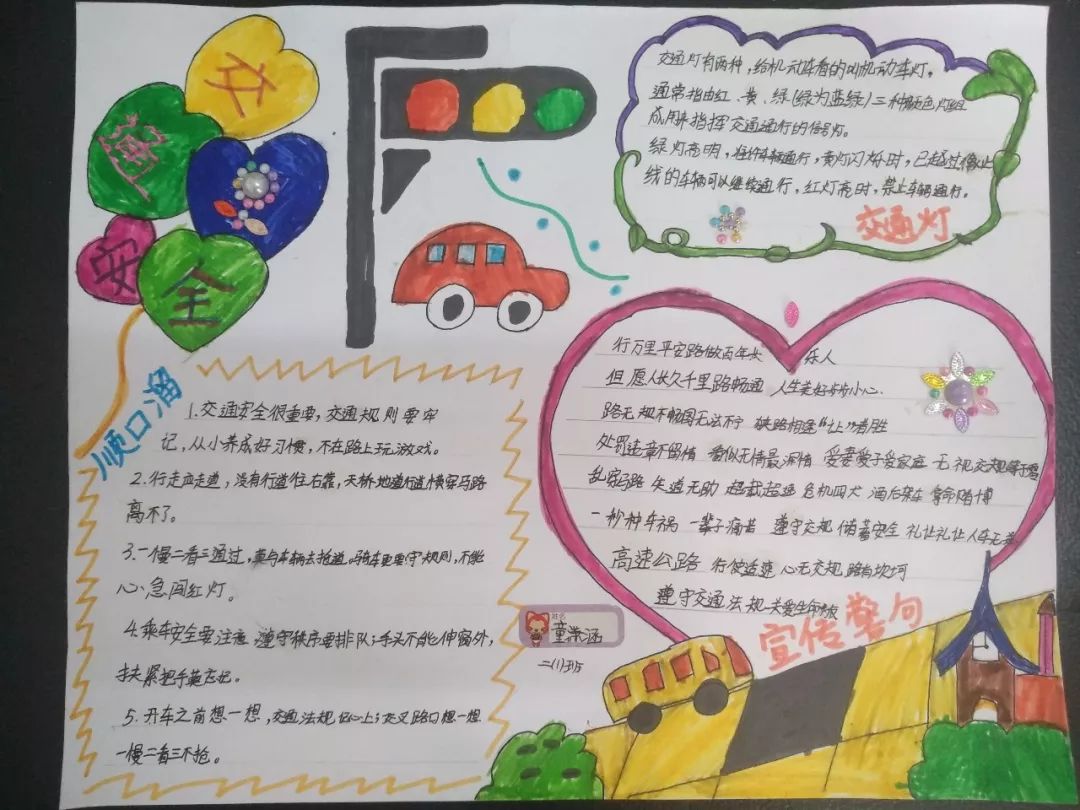 交
通
安
全
交通灯有两种，给机动车看的叫机动车灯，
通常指由红、黄、绿(绿为蓝绿)三种颜色灯组
成用来指挥交通通行的信号灯。
绿灯亮时，准许车辆通行，黄灯闪烁时，已越过停止
线的车辆可以继续通行，红灯亮时，禁止车辆通行。
交通灯
顺口溜
1.交通安全很重要，交通规则要牢
记，从小养成好习惯，不在路上玩游戏。
2.行走应走道，没有行道往右靠，天桥地道行道横穿马路
离不了。
3.一慢二看三通过，莫与车辆去抢道。骑车更要守规则，不能
心急闯红灯。
4.乘车安全要注意 遵守秩序要排队；手头不能伸窗外，
扶紧把手莫忘记。
5.开车之前想一想，交通法规记心上；交叉路口想一想
一慢二看三不抢。
行万里平安路做百年长 乐人
但愿人长久千里路畅通 人生美好步步小心.
路无规不畅国无法不宁 狭路相逢"让"者胜
处罚违章不留情 看似无情最深情 爱妻爱子爱家庭 无视交规等于零
乱穿马路 失道无助 超载超速 危机四犬 酒后驾车 拿命赌博
一秒种车祸 一辈子痛苦 遵守交规 储蓄安全 礼让礼让人车无恙
高速公路 行使适速 心无交规 路有坎坷
遵守交通法规-关爱生命
宣传警句
姓名
童 涵
二(1)班